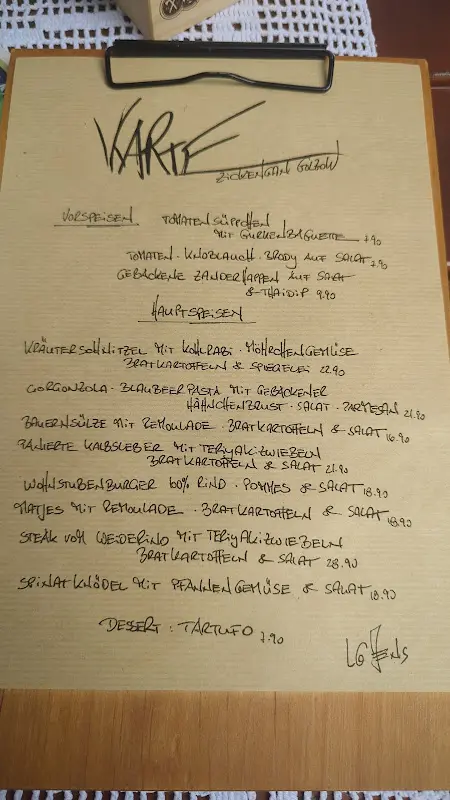 KARTE
ZICKENGANG GOLZOW
VORSPEISEN
TOMATENSÜPPCHEN
MIT GURKENBAGUETTE 7.90
TOMATEN · KNOBLAUCH · BRODY AUF SALAT 7.90
GEBACKENE ZANDERHAPPEN AUF SALAT
& THAIDIP 9.90
HAUPTSPEISEN
KRÄUTERSCHNITZEL MIT KOHLRABI · MÖHRCHENGEMÜSE
BRATKARTOFFELN & SPIEGELEI 22.90
GORGONZOLA · BLAUBEERPASTA MIT GEBACKENER
HÄHNCHENBRUST · SALAT · PARMESAN 21.90
BAUERNSÜLZE MIT REMOULADE · BRATKARTOFFELN & SALAT 16.90
PANIERTE KALBSLEBER MIT TERYAKIZWIEBELN
BRATKARTOFFELN & SALAT 21.90
WOHNSTUBENBURGER 100% RIND · POMMES & SALAT 18.90
MATJES MIT REMOULADE · BRATKARTOFFELN & SALAT 18.90
STEAK VOM WEIDERIND MIT TERIYAKIZWIEBELN
BRATKARTOFFELN & SALAT 28.90
SPINATKNÖDEL MIT PFANNENGEMÜSE & SALAT 18.90
DESSERT : TARTUFO 7.90
LG JENS